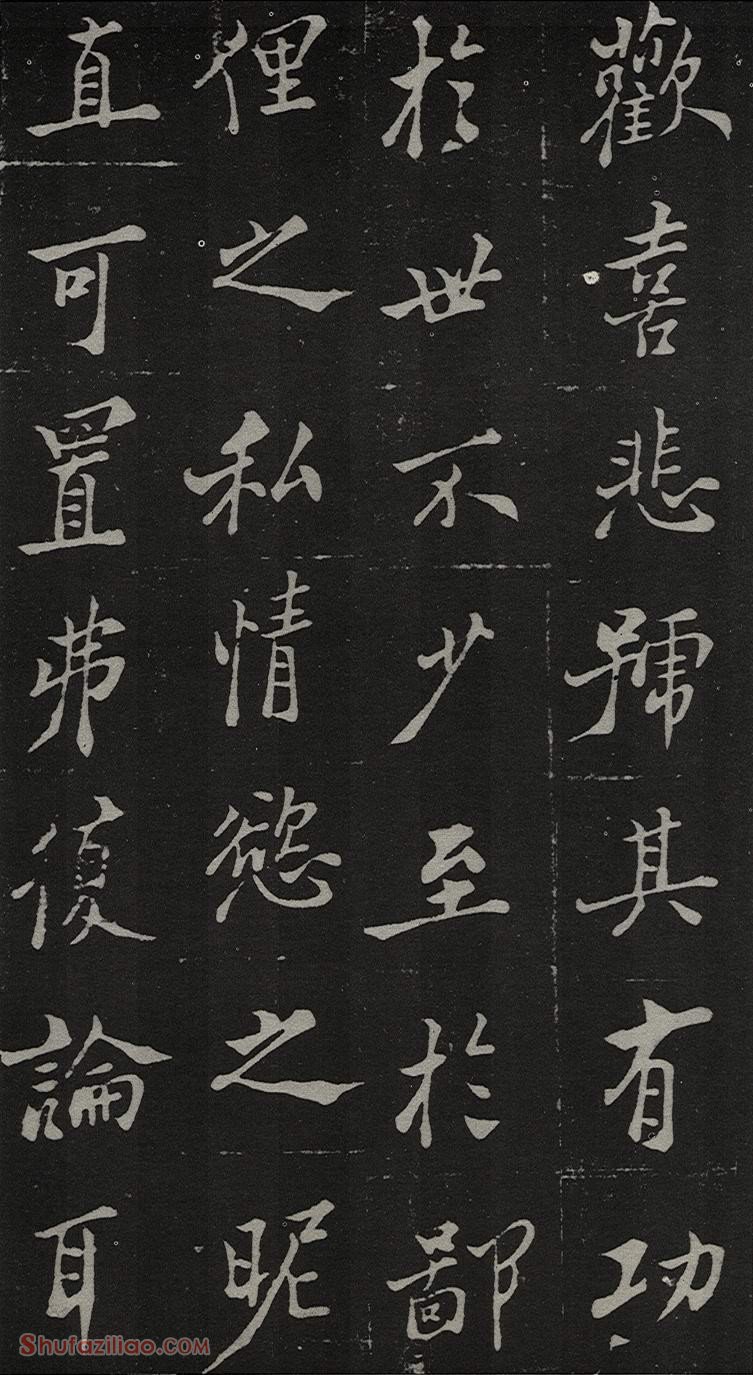 歡喜悲號其有功
於世不少至於鄙
俚之私情慾之昵
直可置弗復論耳
Shufaziliao.COM